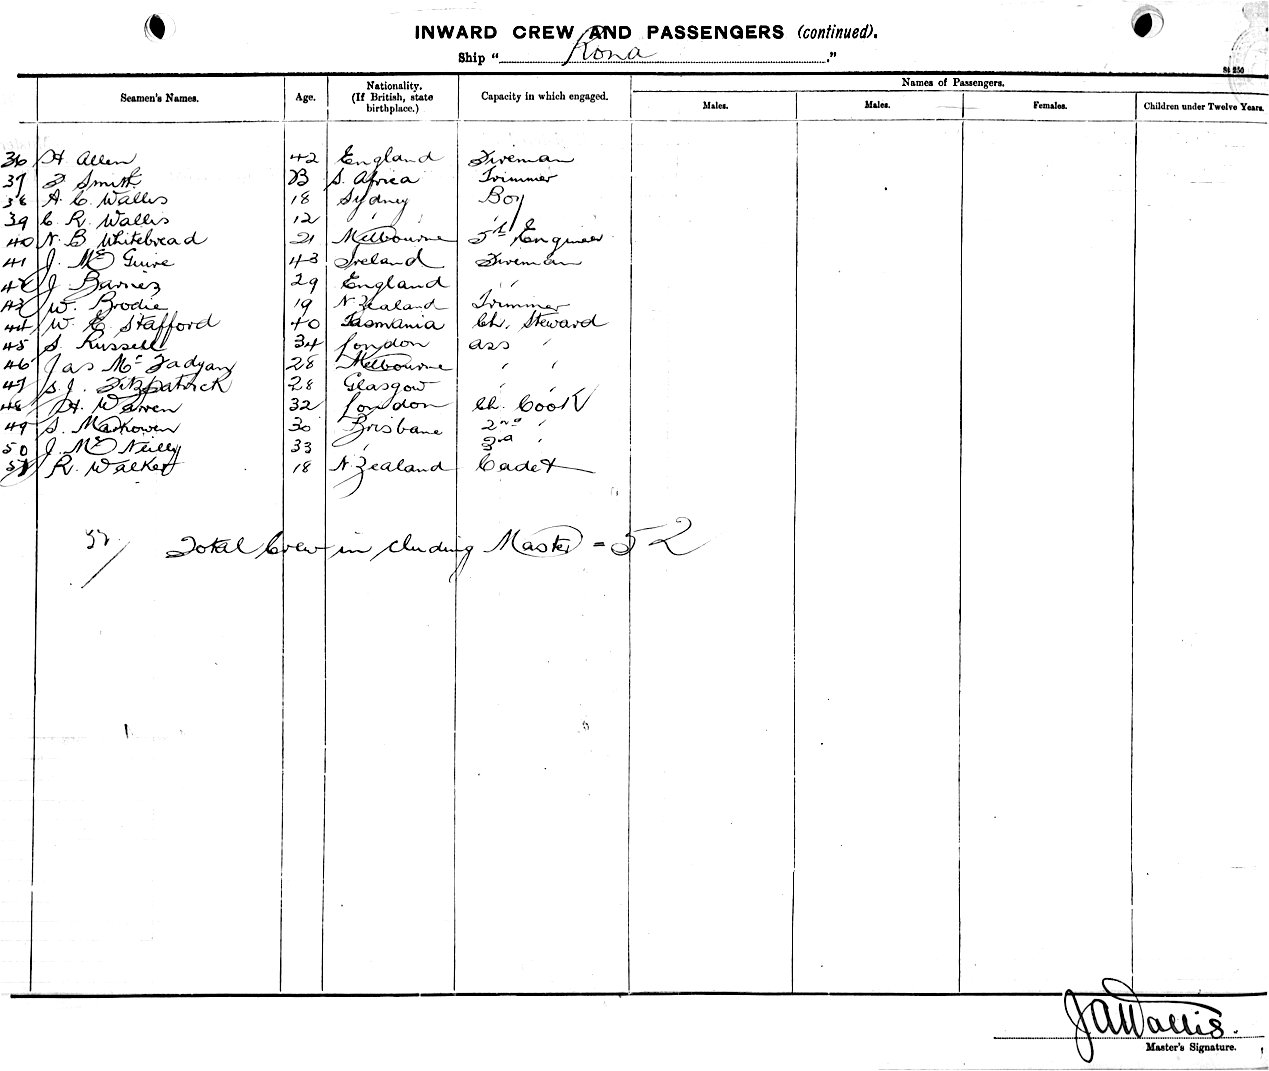 INWARD CREW AND PASSENGERS (continued).
Ship "Rona."
Seamen's Names. Age. Nationality. (If British, state birthplace.) Capacity in which engaged. Names of Passengers.
Males. Males. Females. Children under Twelve Years.
36 H Allen 42 England Fireman
37 Smith 23 S. Africa Trimmer
38 A. C. Wallis 18 Sydney Boy
39 C. R. Wallis 12 " " "
40 N. B Whitebread 21 Melbourne 5th Engineer
41 J. Mc Guire 43 Ireland Fireman
42 J Barnes 29 England "
43 W. Brodie 19 N Zealand Trimmer
44 W. E. Stafford 40 Tasmania Ch. Steward
45 S. Russell 34 London ass "
46 Jas Mc Fadyan 28 Melbourne " "
47 S. J. Fitzpatrick 28 Glasgow " "
48 H. Warren 32 London Ch. Cook
49 S. 30 Brisbane 2nd "
50 J. Mc Neilly 33 " 3rd "
51 R. Walker 18 N. Zealand Cadet
52/ Total Crew including Master = 52
JAWallis.
Master's Signature.